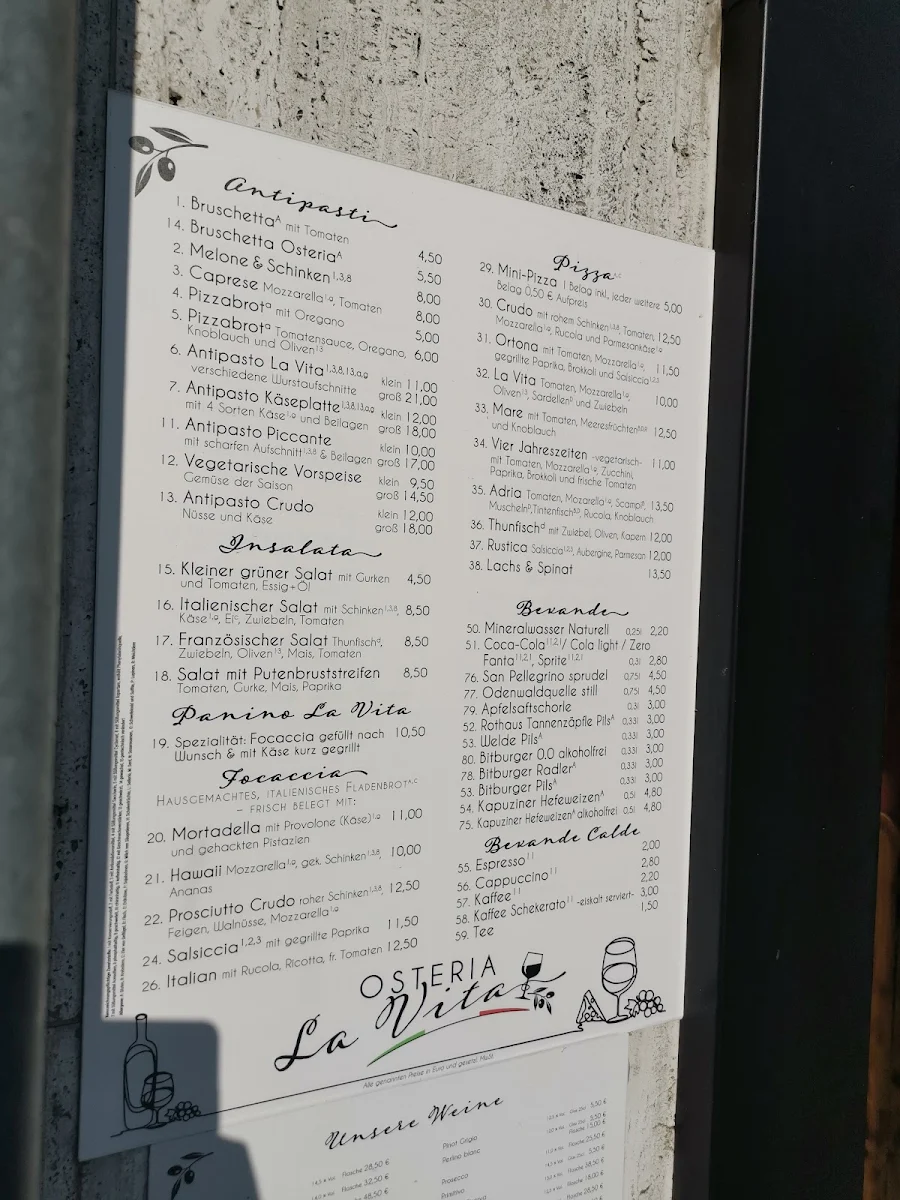 Antipasti
1. Bruschetta^A mit Tomaten 4,50
14. Bruschetta Osteria^A 5,50
2. Melone & Schinken^1,3,8 8,00
3. Caprese Mozzarella^1,g, Tomaten 8,00
4. Pizzabrot^a mit Oregano 5,00
5. Pizzabrot^a Tomatensauce, Oregano, 6,00
Knoblauch und Oliven^13
6. Antipasto La Vita^1,3,8,13,a,g klein 11,00
verschiedene Wurstaufschnitte groß 21,00
7. Antipasto Käseplatte^1,3,8,13,a,g klein 12,00
mit 4 Sorten Käse^1,g und Beilagen groß 18,00
11. Antipasto Piccante klein 10,00
mit scharfen Aufschnitt^1,3,8 & Beilagen groß 17,00
12. Vegetarische Vorspeise klein 9,50
Gemüse der Saison groß 14,50
13. Antipasto Crudo klein 12,00
Nüsse und Käse groß 18,00
Insalata
15. Kleiner grüner Salat mit Gurken 4,50
und Tomaten, Essig+Öl
16. Italienischer Salat mit Schinken^1,3,8, 8,50
Käse^1,g, Ei^c, Zwiebeln, Tomaten
17. Französischer Salat Thunfisch^d, 8,50
Zwiebeln, Oliven^13, Mais, Tomaten
18. Salat mit Putenbruststreifen 8,50
Tomaten, Gurke, Mais, Paprika
Panino La Vita
19. Spezialität: Focaccia gefüllt nach 10,50
Wunsch & mit Käse kurz gegrillt
Focaccia
Hausgemachtes, italienisches Fladenbrot^A,C
– frisch belegt mit:
20. Mortadella mit Provolone (Käse)^1,g 11,00
und gehackten Pistazien
21. Hawaii Mozzarella^1,g, gek. Schinken^1,3,8, 10,00
Ananas
22. Prosciutto Crudo roher Schinken^1,3,8, 12,50
Feigen, Walnüsse, Mozzarella^1,g
24. Salsiccia^1,2,3 mit gegrillte Paprika 11,50
26. Italian mit Rucola, Ricotta, fr. Tomaten 12,50
Pizza
29. Mini-Pizza 1 Belag inkl, jeder weitere 5,00
Belag 0,50 € Aufpreis
30. Crudo mit rohem Schinken^1,3,8, Tomaten, 12,50
Mozzarella^1,g, Rucola und Parmesankäse^1,g
31. Ortona mit Tomaten, Mozzarella^1,g, 11,50
gegrillte Paprika, Brokkoli und Salsiccia^1,2,3
32. La Vita Tomaten, Mozzarella^1,g, 10,00
Oliven^13, Sardellen^D und Zwiebeln
33. Mare mit Tomaten, Meeresfrüchten 12,50
und Knoblauch
34. Vier Jahreszeiten -vegetarisch- 11,00
mit Tomaten, Mozzarella^1,g, Zucchini,
Paprika, Brokkoli und frische Tomaten
35. Adria Tomaten, Mozarella^1,g, Scampi^B, 13,50
Muscheln, Tintenfisch, Rucola, Knoblauch
36. Thunfisch^d mit Zwiebel, Oliven, Kapern 12,00
37. Rustica Salsiccia^1,2,3, Aubergine, Parmesan 12,00
38. Lachs & Spinat 13,50
Bevande
50. Mineralwasser Naturell 0,25l 2,20
51. Coca-Cola^11,2,1/ Cola light / Zero
Fanta^11,2,1, Sprite^11,2,1 0,3l 2,80
76. San Pellegrino sprudel 0,75l 4,50
77. Odenwaldquelle still 0,75l 4,50
79. Apfelsaftschorle 0,3l 3,00
52. Rothaus Tannenzäpfle Pils^A 0,33l 3,00
53. Welde Pils^A 0,33l 3,00
80. Bitburger 0,0 alkoholfrei 0,33l 3,00
78. Bitburger Radler^A 0,33l 3,00
53. Bitburger Pils^A 0,33l 3,00
54. Kapuziner Hefeweizen^A 0,5l 4,80
75. Kapuziner Hefeweizen^A alkoholfrei 0,5l 4,80
Bevande Calde
55. Espresso^11 2,00
56. Cappuccino^11 2,80
57. Kaffee^11 2,20
58. Kaffee Schekerato^11 -eiskalt serviert- 3,00
59. Tee 1,50
OSTERIA
La Vita
Alle genannten Preise in Euro und gesetzl. MwSt.
Unsere Weine
Flasche 28,50 €
Flasche 32,50 €
Flasche 48,50 €
Pinot Grigio
Perlino bianc
Prosecco
Primitivo